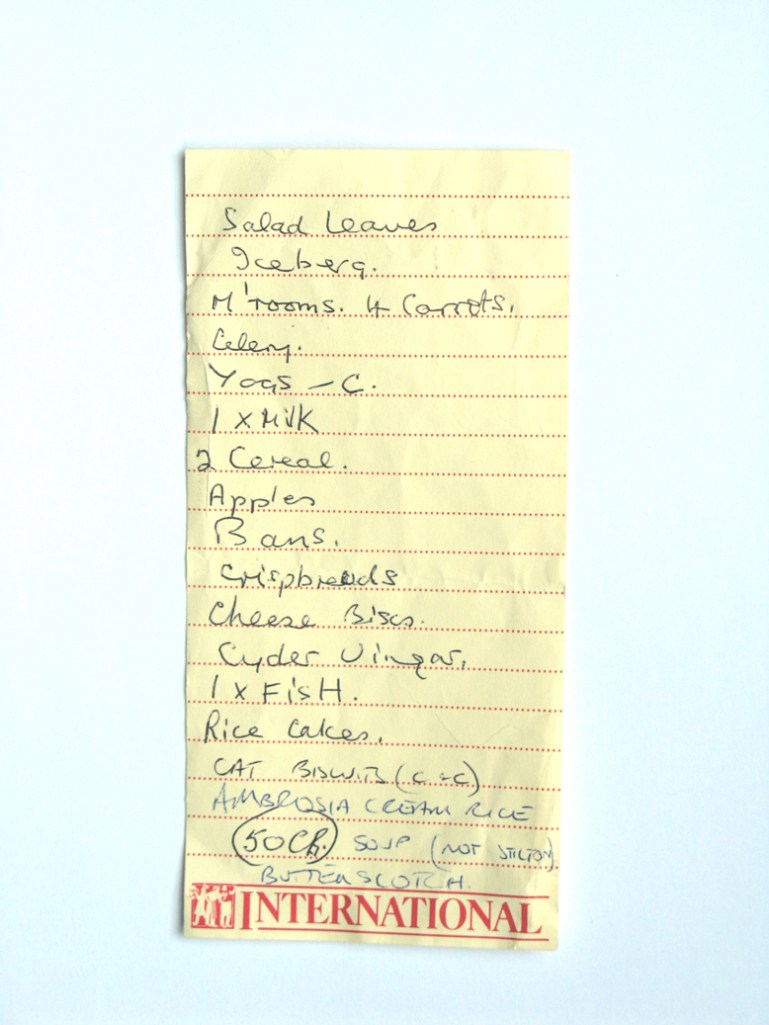 Salad Leaves
Iceberg.
M'rooms. 4 Carrots.
Celery.
Yogs – C.
1 x Milk
2 Cereal.
Apples
Bans.
Crispbreads
Cheese Biscs.
Cyder Vingar.
1 x FisH.
Rice Cakes.
CAT BISCUITS (C + C)
AMBROSIA CREAM RICE
50Ch. SOUP (NOT STILTON)
BUTTERSCOTCH.
INTERNATIONAL